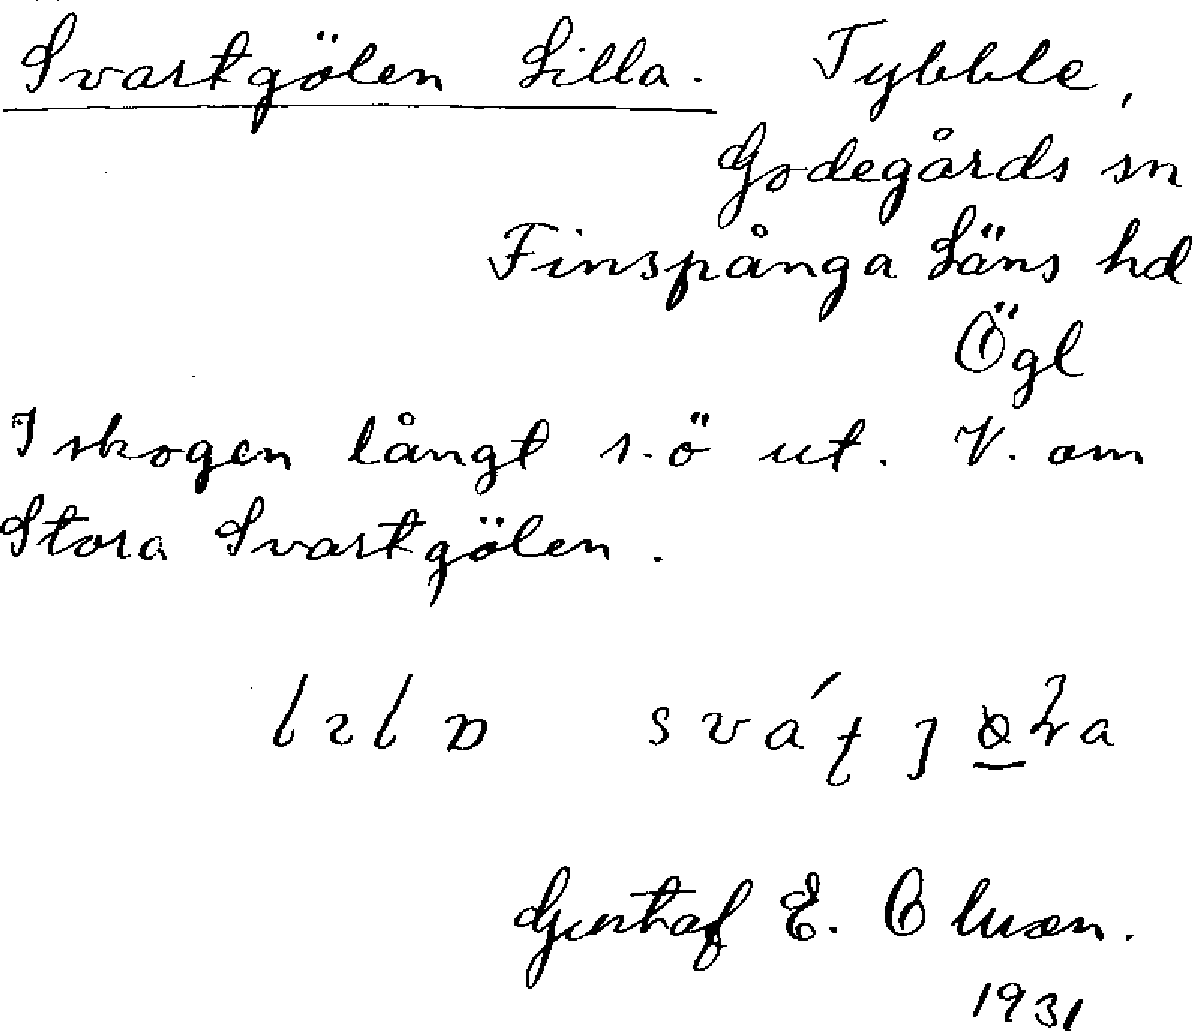 Svartgölen Lilla. Tybble,
Godegårds sn
Finspånga Läns hd
Ögl
I skogen långt s.ö ut. V. om
Stora Svartgölen.
Gustaf E. Oluson.
1931